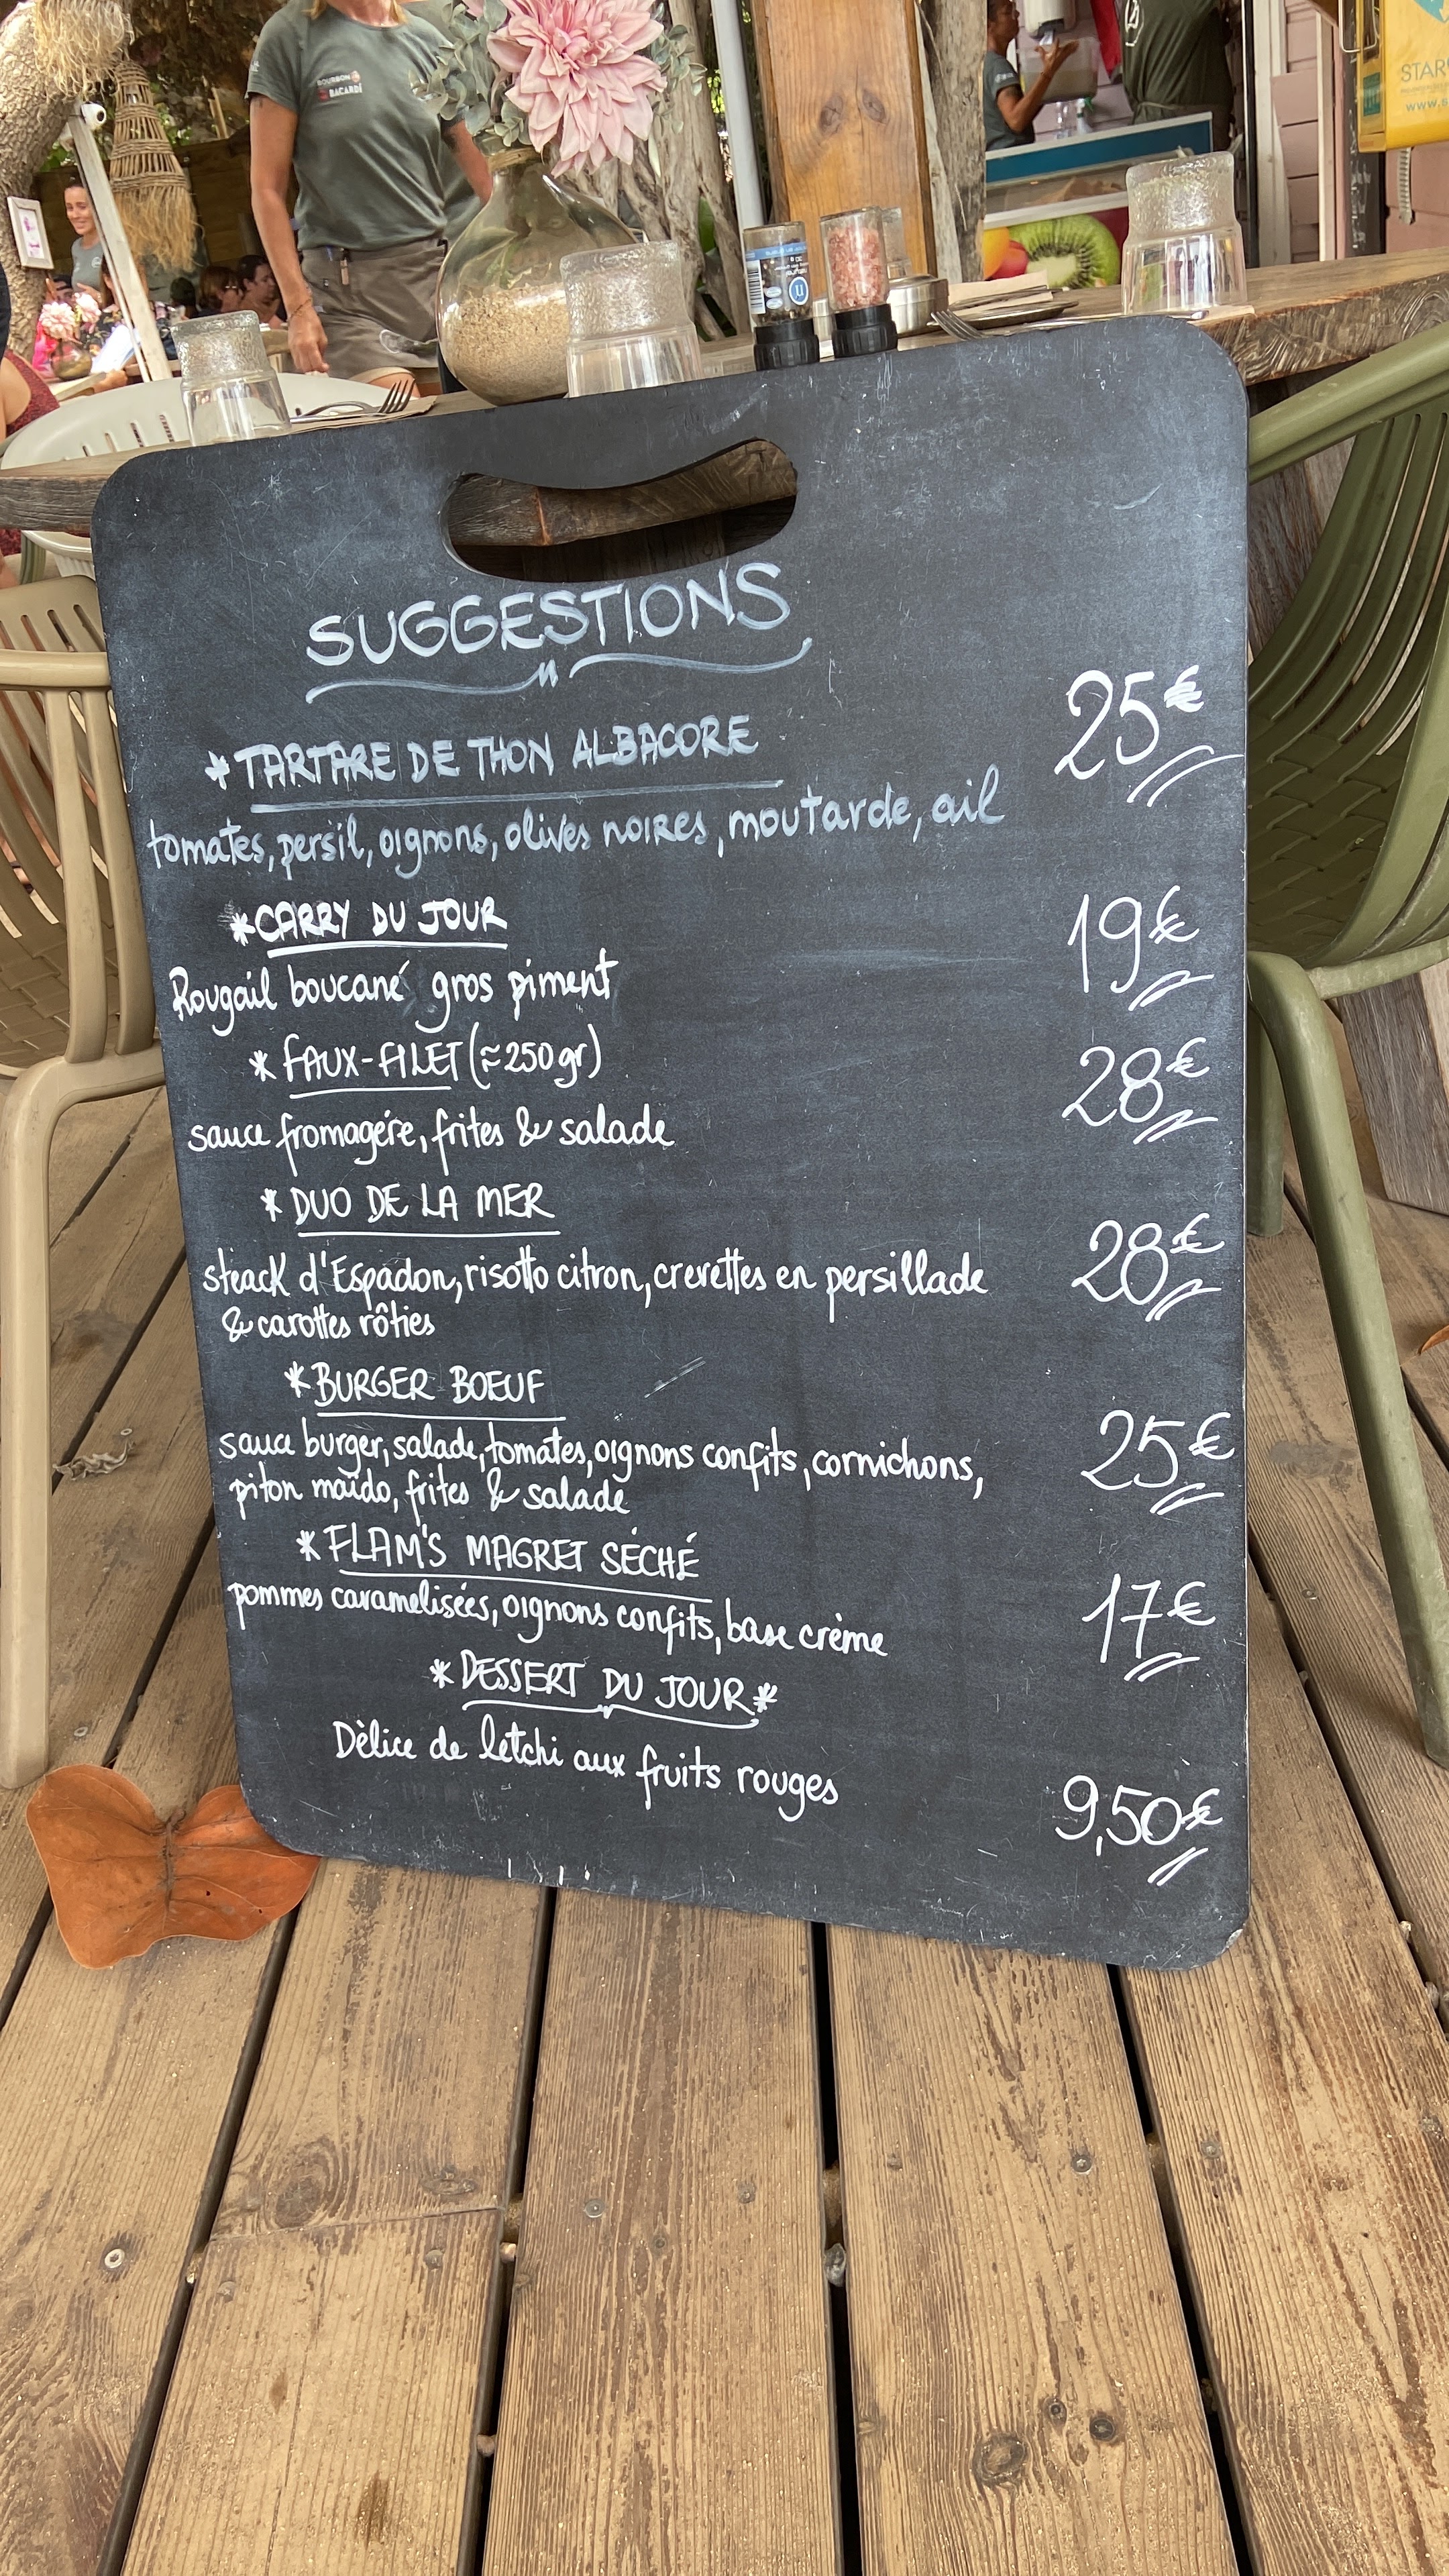 BOURBON
BACARDÍ
STAR
www.s
SUGGESTIONS
*TARTARE DE THON ALBACORE 25€
tomates, persil, oignons, olives noires, moutarde, ail
*CARRY DU JOUR 19€
Rougail boucané gros piment
*FAUX-FILET (≈250gr) 28€
sauce fromagére, frites & salade
*DUO DE LA MER 28€
steack d'Espadon, risotto citron, crevettes en persillade
& carottes rôties
*BURGER BOEUF 25€
sauce burger, salade, tomates, oignons confits, cornichons,
piton maïdo, frites & salade
*FLAM'S MAGRET SÉCHÉ 17€
pommes caramelisées, oignons confits, base crème
*DESSERT DU JOUR*
Dèlice de letchi aux fruits rouges 9,50€